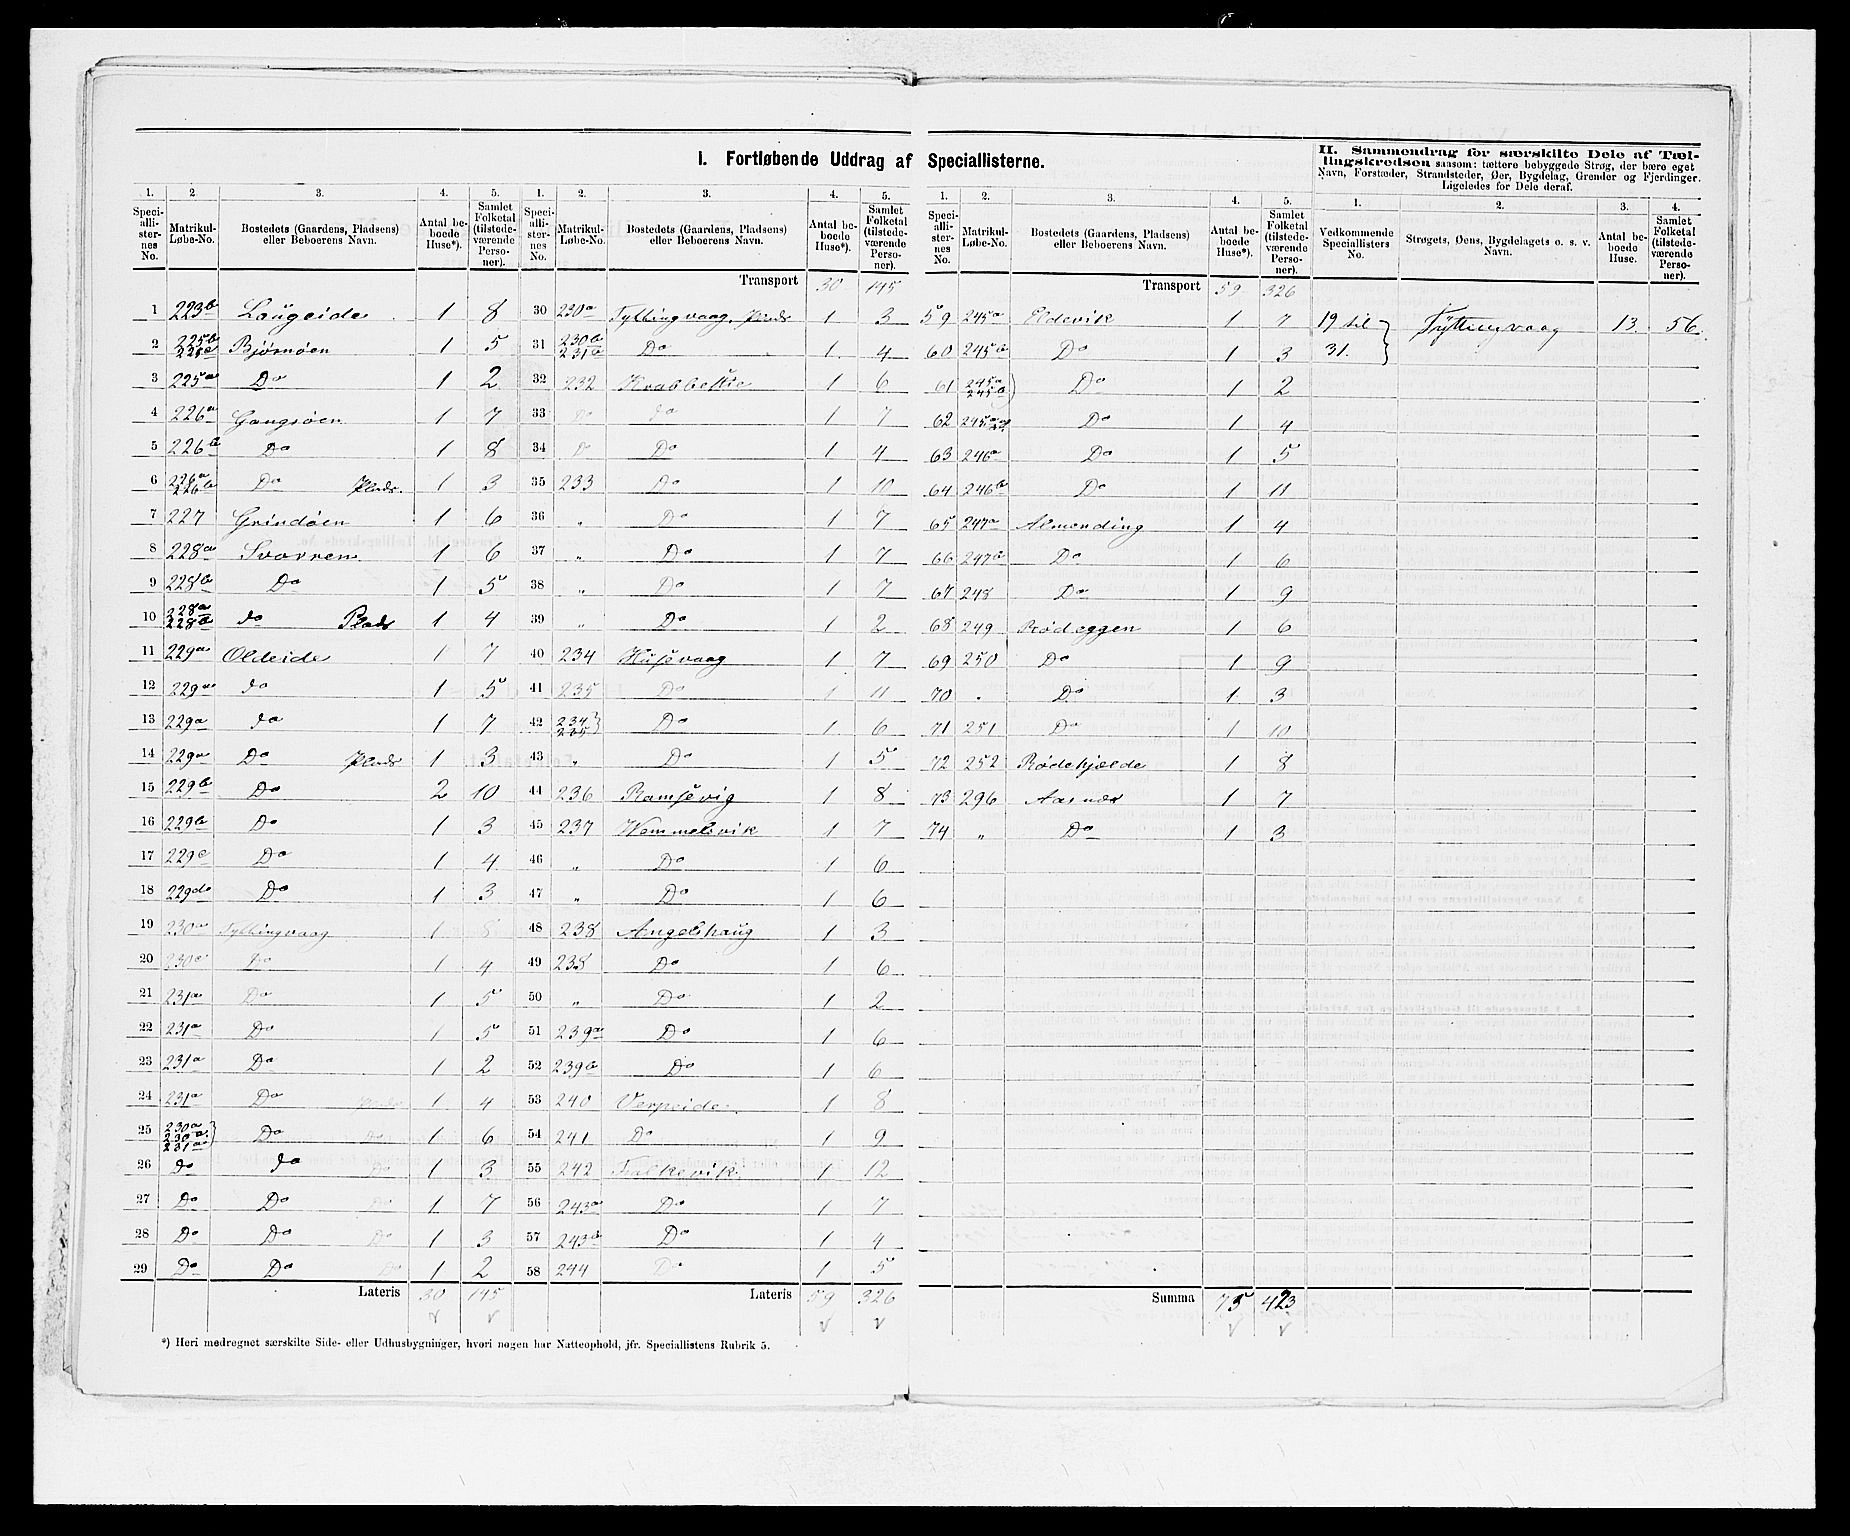 I. Fortløbende Uddrag af Speciallisterne.
1. 2. 3. 4. 5.
Speciallisternes No. Matrikul-Løbe-No. Bostedets (Gaardens, Pladsens) eller Beboerens Navn. Antal beboede Huse*). Samlet Folketal (tilstedeværende Personer).
1 223b Laugeide 1 8
2 225b 225c Bjørnøen 1 5
3 225a Do 1 2
4 226a Gangsøen 1 7
5 226b Do 1 8
6 226a 226b Do Plads. 1 3
7 227 Grindøen 1 6
8 228a Svarren 1 6
9 228b Do 1 5
10 228a 228b do Plads 1 4
11 229a Oldeide 1 7
12 229a do 1 5
13 229a do 1 7
14 229a Do Plads 1 3
15 229b Do 2 10
16 229b Do 1 3
17 229c Do 1 4
18 229d Do 1 3
19 230a Tyttingvaag 1 8
20 230c Do 1 4
21 231a Do 1 5
22 231a Do 1 5
23 231a Do 1 2
24 231a Do Plads 1 4
25 230a 230a 231a Do Do 1 6
26 Do do Do 1 3
27 Do Do Do 1 7
28 Do Do Do 1 3
29 Do Do Do 1 2
Lateris 30 145
*) Heri medregnet særskilte Side- eller Udhusbygninger, hvori nogen har Natteophold, jfr. Speciallistens Rubrik 5.
1. 2. 3. 4. 5.
Speciallisternes No. Matrikul-Løbe-No. Bostedets (Gaardens, Pladsens) eller Beboerens Navn. Antal beboede Huse*). Samlet Folketal (tilstedeværende Personer).
Transport 30 145
30 230a Tyttingvaag, Plads 1 3
31 230b 231b Do 1 4
32 232 Krabbestie 1 6
33 Do do 1 7
34 D Do 1 4
35 233 Do 1 10
36 " Do 1 7
37 " Do 1 7
38 " Do 1 7
39 " Do 1 2
40 234 Husevaag 1 7
41 235 Do 1 11
42 234 235 Do 1 6
43 " Do 1 5
44 236 Ramsevig 1 8
45 237 Hemmelsvik 1 7
46 " Do 1 6
47 " Do 1 6
48 238 Angelshaug 1 3
49 238 Do 1 6
50 " Do 1 2
51 239a Do 1 6
52 239b Do 1 6
53 240 Verpeide 1 8
54 241 Do 1 9
55 242 Falkevik 1 12
56 243a Do 1 7
57 243b Do 1 4
58 244 Do 1 5
Lateris 59 326
1. 2. 3. 4. 5.
Speciallisternes No. Matrikul-Løbe-No. Bostedets (Gaardens, Pladsens) eller Beboerens Navn. Antal beboede Huse*). Samlet Folketal (tilstedeværende Personer).
Transport 59 326
59 245a Eldevik 1 7
60 245b Do 1 3
61 245a 245b Do 1 2
62 245a Do 1 4
63 246a Do 1 5
64 246b Do 1 11
65 247a Almending 1 4
66 247b Do 1 6
67 248 Do 1 9
68 249 Rødeggen 1 6
69 250 Do 1 9
70 . Do 1 3
71 251 Do 1 10
72 252 Rødekjelde 1 8
73 296 Aasnæs 1 7
74 " Do 1 3
Summa 75 423
II. Sammendrag for særskilte Dele af Tællingskredsen saasom: tættere bebyggede Strøg, der bære eget Navn, Forstæder, Strandsteder, Øer, Bygdelag, Grender og Fjerdinger. Ligeledes for Dele deraf.
1. 2. 3. 4.
Vedkommende Speciallisters No. Strøgets, Øens, Bygdelagets o. s. v. Navn. Antal beboede Huse. Samlet Folketal (tilstedeværende Personer).
19 til 31. Tyttingvaag 13 56.